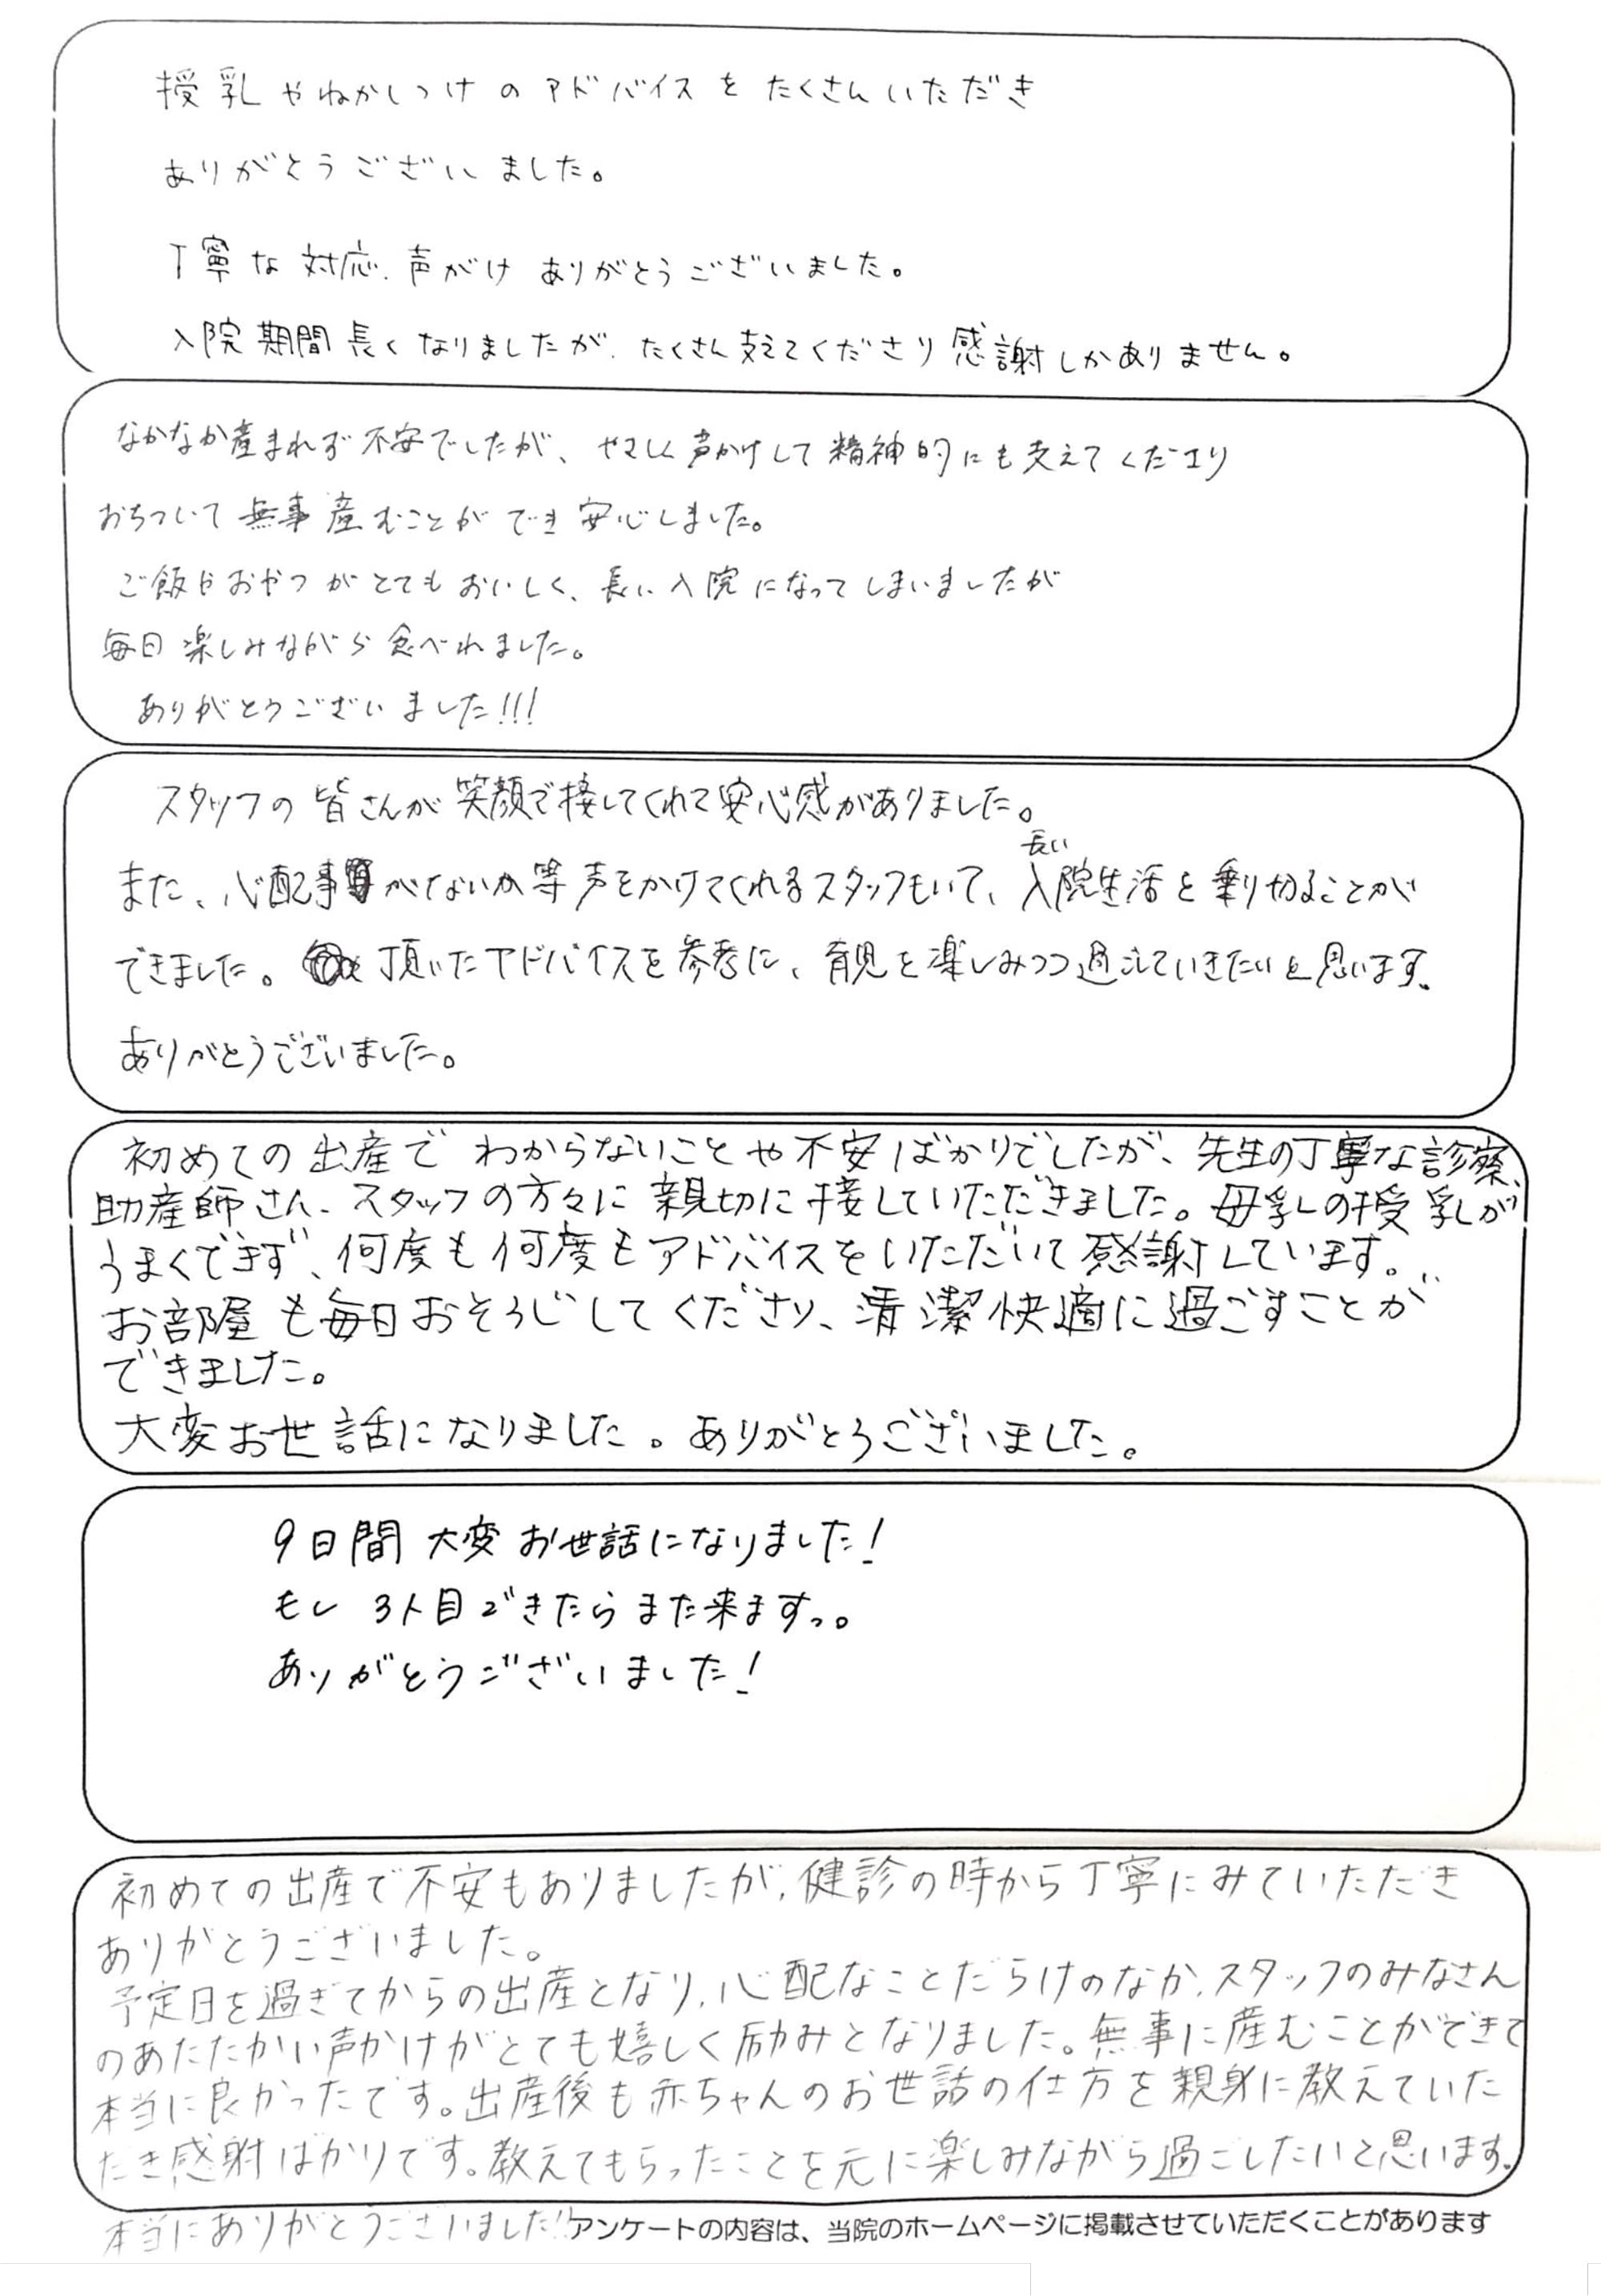 授乳やねかしつけのアドバイスをたくさんいただき
ありがとうございました。
丁寧な対応、声がけありがとうございました。
入院期間長くなりましたが、たくさん支えてくださり感謝しかありません。
なかなか産まれず不安でしたが、やさしく声かけして精神的にも支えてくださり
おちついて無事産むことができ安心しました。
ご飯やおやつがとてもおいしく、長い入院になってしまいましたが
毎日楽しみながら食べれました。
ありがとうございました!!!
スタッフの皆さんが笑顔で接してくれて安心感がありました。
また、心配事がないか等声をかけてくれるスタッフもいて、長い入院生活を乗り切ることが
できました。頂いたアドバイスを参考に、育児を楽しみつつ過ごしていきたいと思います。
ありがとうございました。
初めての出産でわからないことや不安ばかりでしたが、先生の丁寧な診察、
助産師さん、スタッフの方々に親切に接していただきました。母乳の授乳が
うまくできず、何度も何度もアドバイスをいただいて感謝しています。
お部屋も毎日おそうじしてくださり、清潔快適に過ごすことが
できました。
大変お世話になりました。ありがとうございました。
9日間大変お世話になりました!
もし3人目できたらまた来ますっ。
ありがとうございました!
初めての出産で不安もありましたが、健診の時から丁寧にみていただき
ありがとうございました。
予定日を過ぎてからの出産となり、心配なことだらけのなか、スタッフのみなさん
のあたたかい声かけがとても嬉しく励みとなりました。無事に産むことができて
本当に良かったです。出産後も赤ちゃんのお世話の仕方を親身に教えていた
だき感射ばかりです。教えてもらったことを元に楽しみながら過ごしたいと思います。
本当にありがとうございました!!
アンケートの内容は、当院のホームページに掲載させていただくことがあります